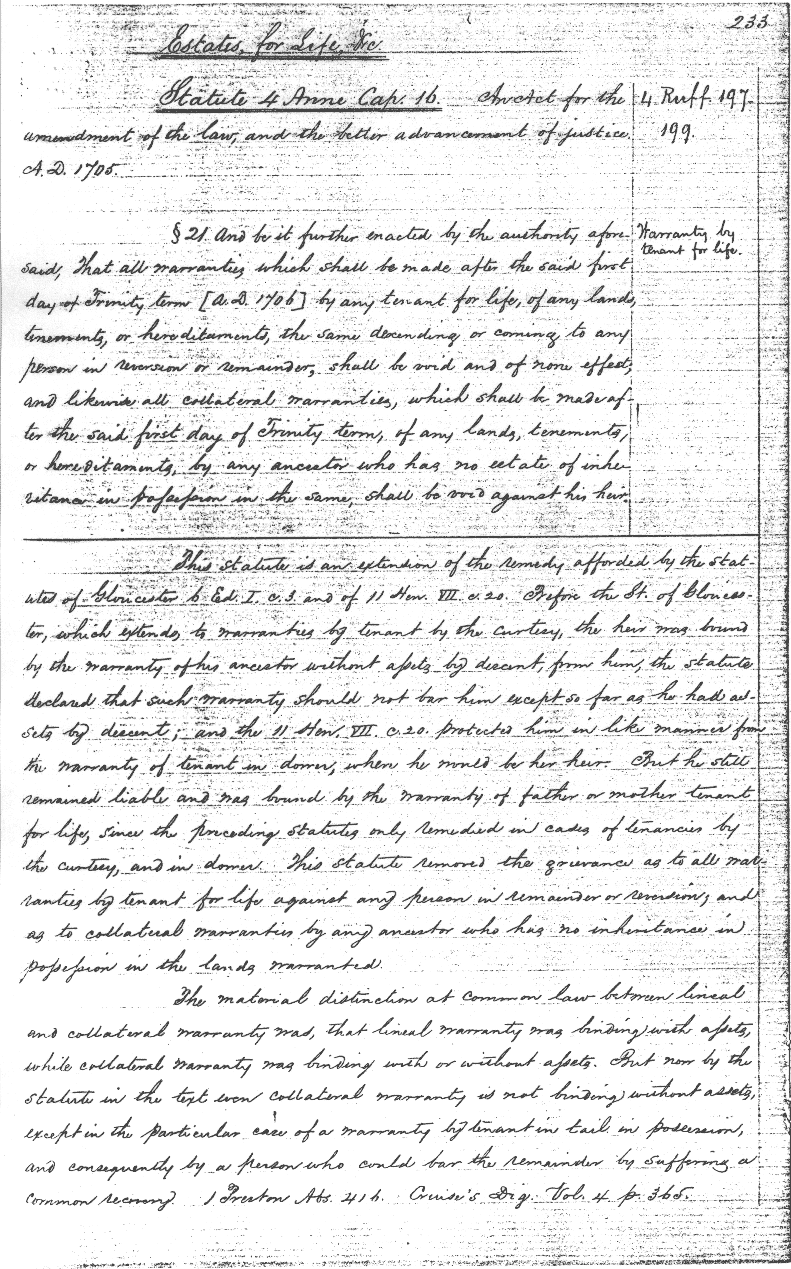 233
Estates, for Life, &c.
Statute 4 Anne Cap. 16. An Act for the
4. Ruff. 197.
199.
amendment of the law, and the better advancement of justice.
A.D. 1705.
§ 21. And be it further enacted by the authority afore-
Warranty by
tenant for life.
said, That all warranties which shall be made after the said first
day of Trinity term [A.D. 1706] by any tenant for life, of any lands,
tenements, or hereditaments, the same descending or coming to any
person in reversion or remainder, shall be void and of none effect;
and likewise all collateral warranties, which shall be made af-
ter the said first day of Trinity term, of any lands, tenements,
or hereditaments, by any ancestor who has no estate of inhe-
ritance in possession in the same, shall be void against his heir.
This statute is an extension of the remedy afforded by the stat-
utes of Gloucester 6 Ed. I. c. 3. and of 11 Hen. VII. c. 20. Before the St. of Glouces-
ter, which extends to warranties by tenant by the curtesy, the heir was bound
by the warranty of his ancestor without assets by descent, from him, the statute
declared that such warranty should not bar him except so far as he had as-
sets by descent; and the 11 Hen. VII. c. 20. protected him in like manner from
the warranty of tenant in dower, when he would be her heir. But he still
remained liable and was bound by the warranty of father or mother tenant
for life, since the preceding statutes only remedied in cases of tenancies by
the curtesy, and in dower. This statute removed the grievance as to all war-
ranties by tenant for life against any person in remainder or reversion; and
as to collateral warranties by any ancestor who has no inheritance in
possession in the lands warranted.
The material distinction at common law between lineal
and collateral warranty was, that lineal warranty was binding with assets,
while collateral warranty was binding with or without assets. But now by the
statute in the text even collateral warranty is not binding without assets,
except in the particular case of a warranty by tenant in tail in possession,
and consequently by a person who could bar the remainder by suffering a
common recovery. 1 Preston Abs. 416. Cruise's Dig. Vol. 4 p. 365.